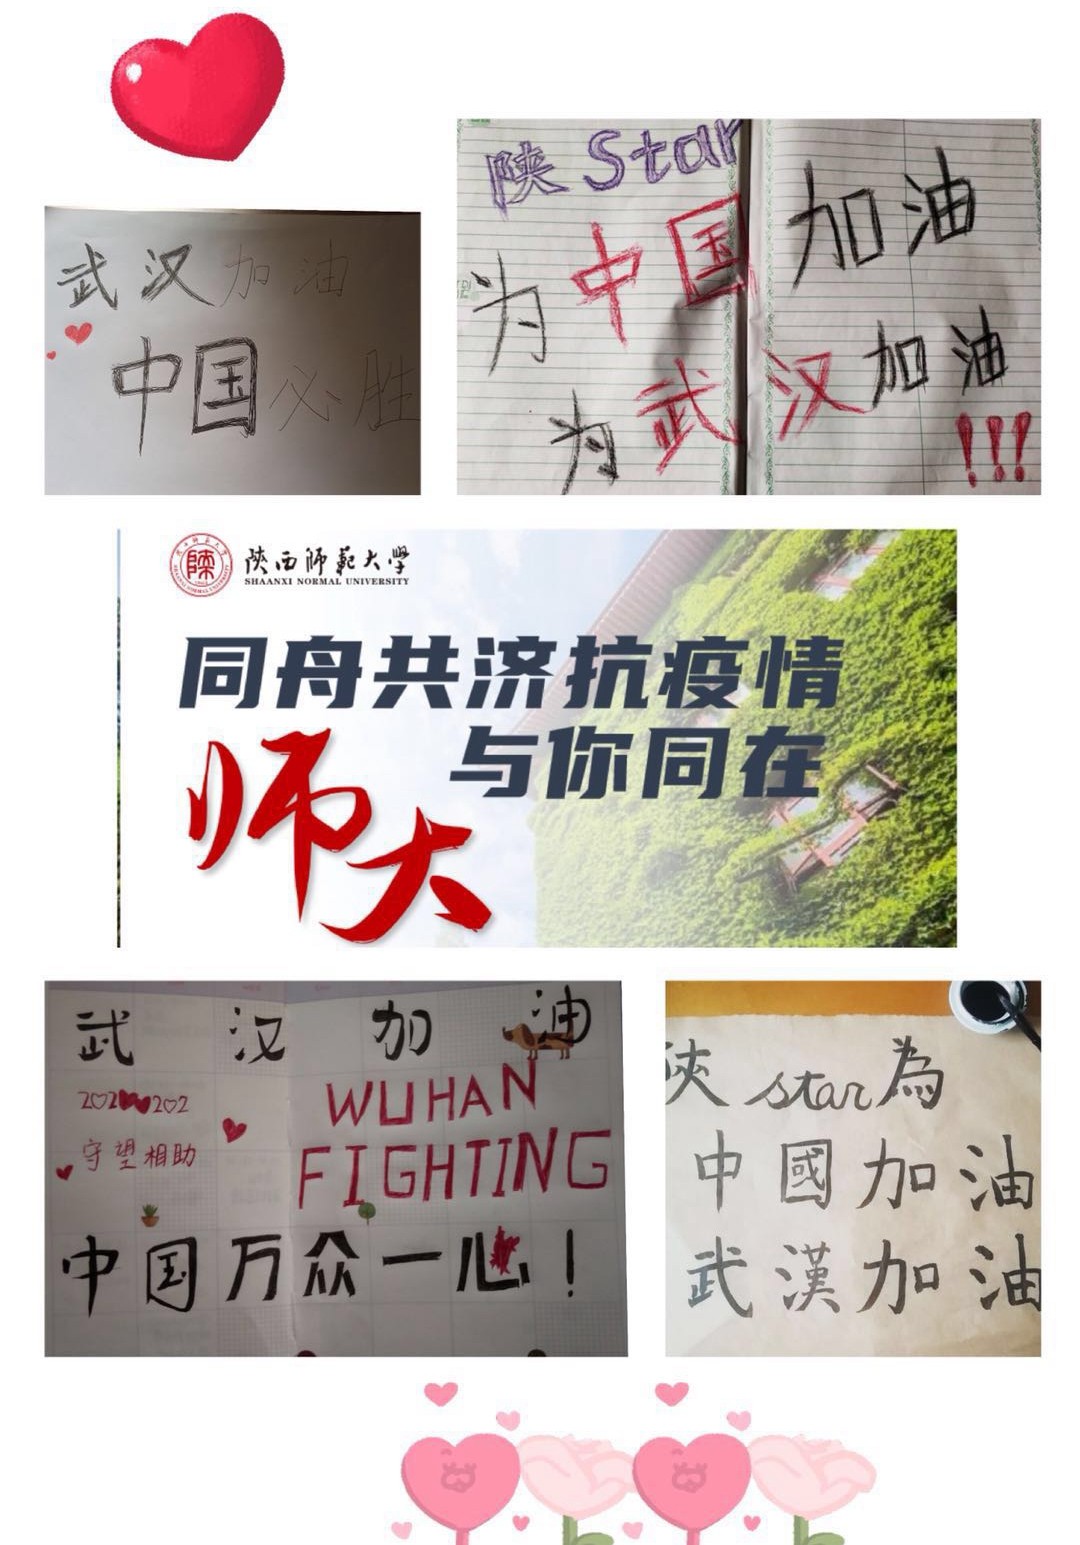 武汉加油
中国必胜
陕Star
为中国加油
为武汉加油!!!
陝西師範大學
SHAANXI NORMAL UNIVERSITY
同舟共济抗疫情
师大与你同在
武汉加油
202❤❤202
守望相助
WUHAN
FIGHTING
中国万众一心!
陝star為
中國加油
武漢加油